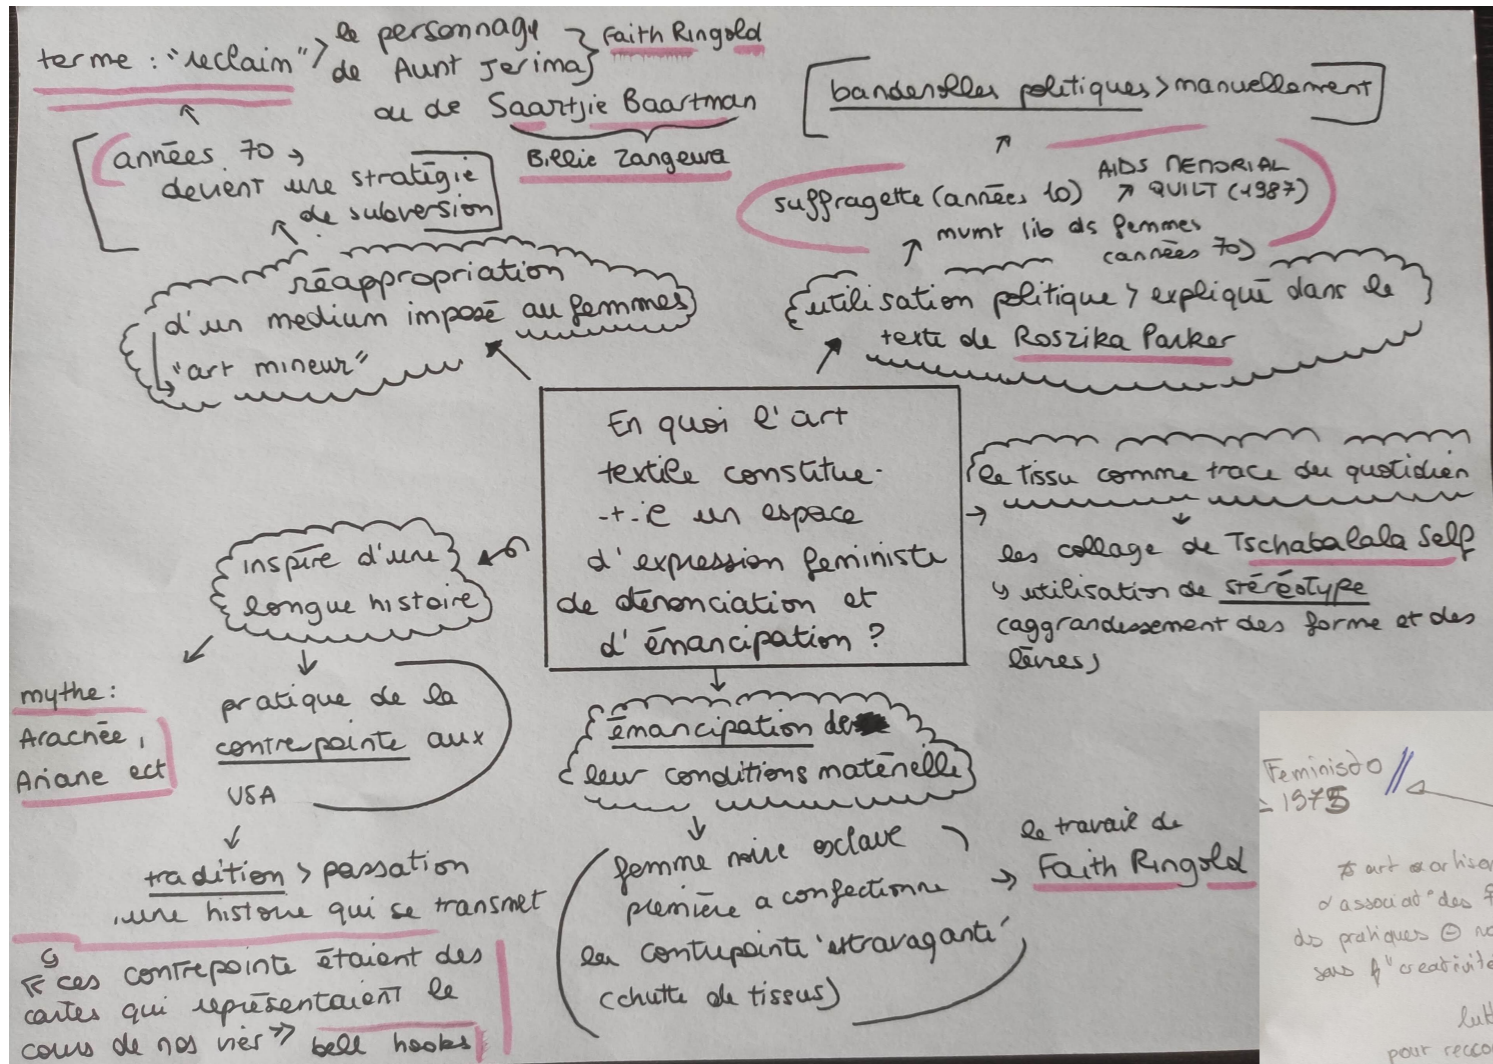 terme : "reclaim" > le personnage
de Aunt Jerima
ou de Saartjie Baartman
Faith Ringold
Billie Zangewa
années 70 →
devient une stratégie
de subversion
réappropriation
d'un medium imposé au femmes
"art mineur"
banderolles politiques > manuellement
suffragette (années 10)
AIDS MEMORIAL
QUILT (1987)
mvmt lib ds femmes
(années 70)
utilisation politique > expliqué dans le
texte de Roszika Parker
En quoi l'art
textile constitue-
-t-il un espace
d'expression feministe
de dénonciation et
d'émancipation ?
le tissu comme trace du quotidien
les collage de Tschabalala Self
↳ utilisation de stéréotype
(aggrandissement des forme et des
lèvres)
inspire d'une
longue histoire
mythe :
Aracnée,
Ariane ect
pratique de la
contrepointe aux
USA
tradition > passation
une histoire qui se transmet
"ces contrepointe étaient des
cartes qui représentaient le
cours de nos vier" bell hooks
émancipation de
leur conditions matérielle
femme noire esclave
première a confectionne
les contrepointe 'extravagante'
(chutte de tissus)
le travail de
Faith Ringold
Feministo
1975
art
d'associat° des
ds pratiques ⊖
sans "créativité
pour